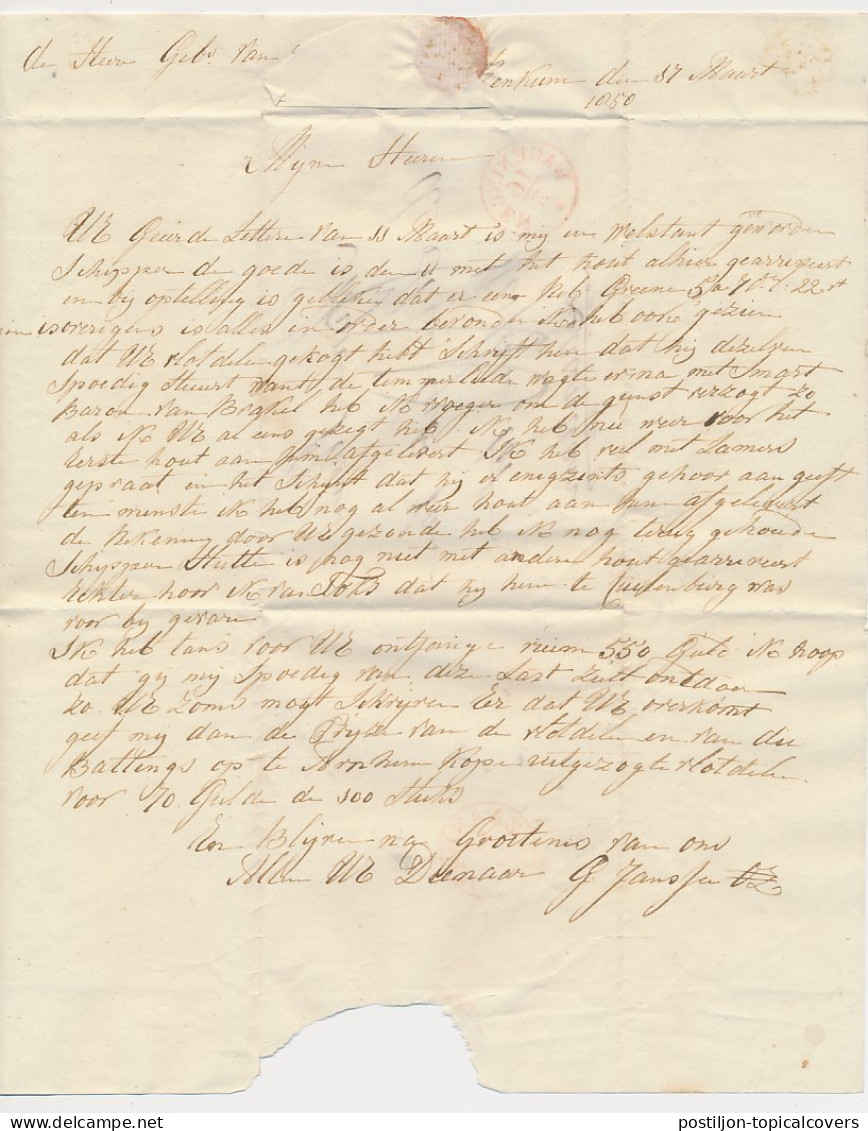 de Heere Gebr van
Renkum den 17 Maart
1850
Mijne Heeren
UE Geerde Lettere van 11 Maart is mij in Welstant geworden
Schipper de goede is den 11 met het hout alhier gearriveert
en bij optelling is gebleken dat er een Greene 22 vt
overigens is alles in order bevonden Ik heb oore gezien
dat UE vlotdele gekogt hebt Schrijft hem dat hij dezelven
Spoedig Stuert want de timmerliede wagte erna met Smart
Baron van Brakel heb Ik vroeger om de gunst verzogt zo
als Ik UE al eens gezegt heb Ik heb nu weer voor het
eerste hout aan hem afgelevert Ik heb veel met Lamers
gepraat en het Schijnt dat hij er enigzints gehoor aan geeft
ten minste Ik heb nog al weer hout aan hem afgelevert
de Rekening door UE gezonde heb Ik nog terug gehoude
Schipper Stutte is nog niet met andere hout gearriveert
hoor Ik van dat hij hem te Cuilenburg was
voor by gevare
IK heb tans voor UE ontfange ruim 550 Guld Ik hoop
dat gij mij Spoedig van deze Last zult ontdoen
zo UE zoms mogt Schrijven Eer dat UE overkomt
geef mij dan de Prijze van de vlotdele en van die
Battings op te Arnhem Kope uitgezogte vlotdele
voor 70 Gulde de 100 Stuks
En Blijve na Groetenis van ons
Allen UE Dienaar G Janssen
postiljon-topicalcovers